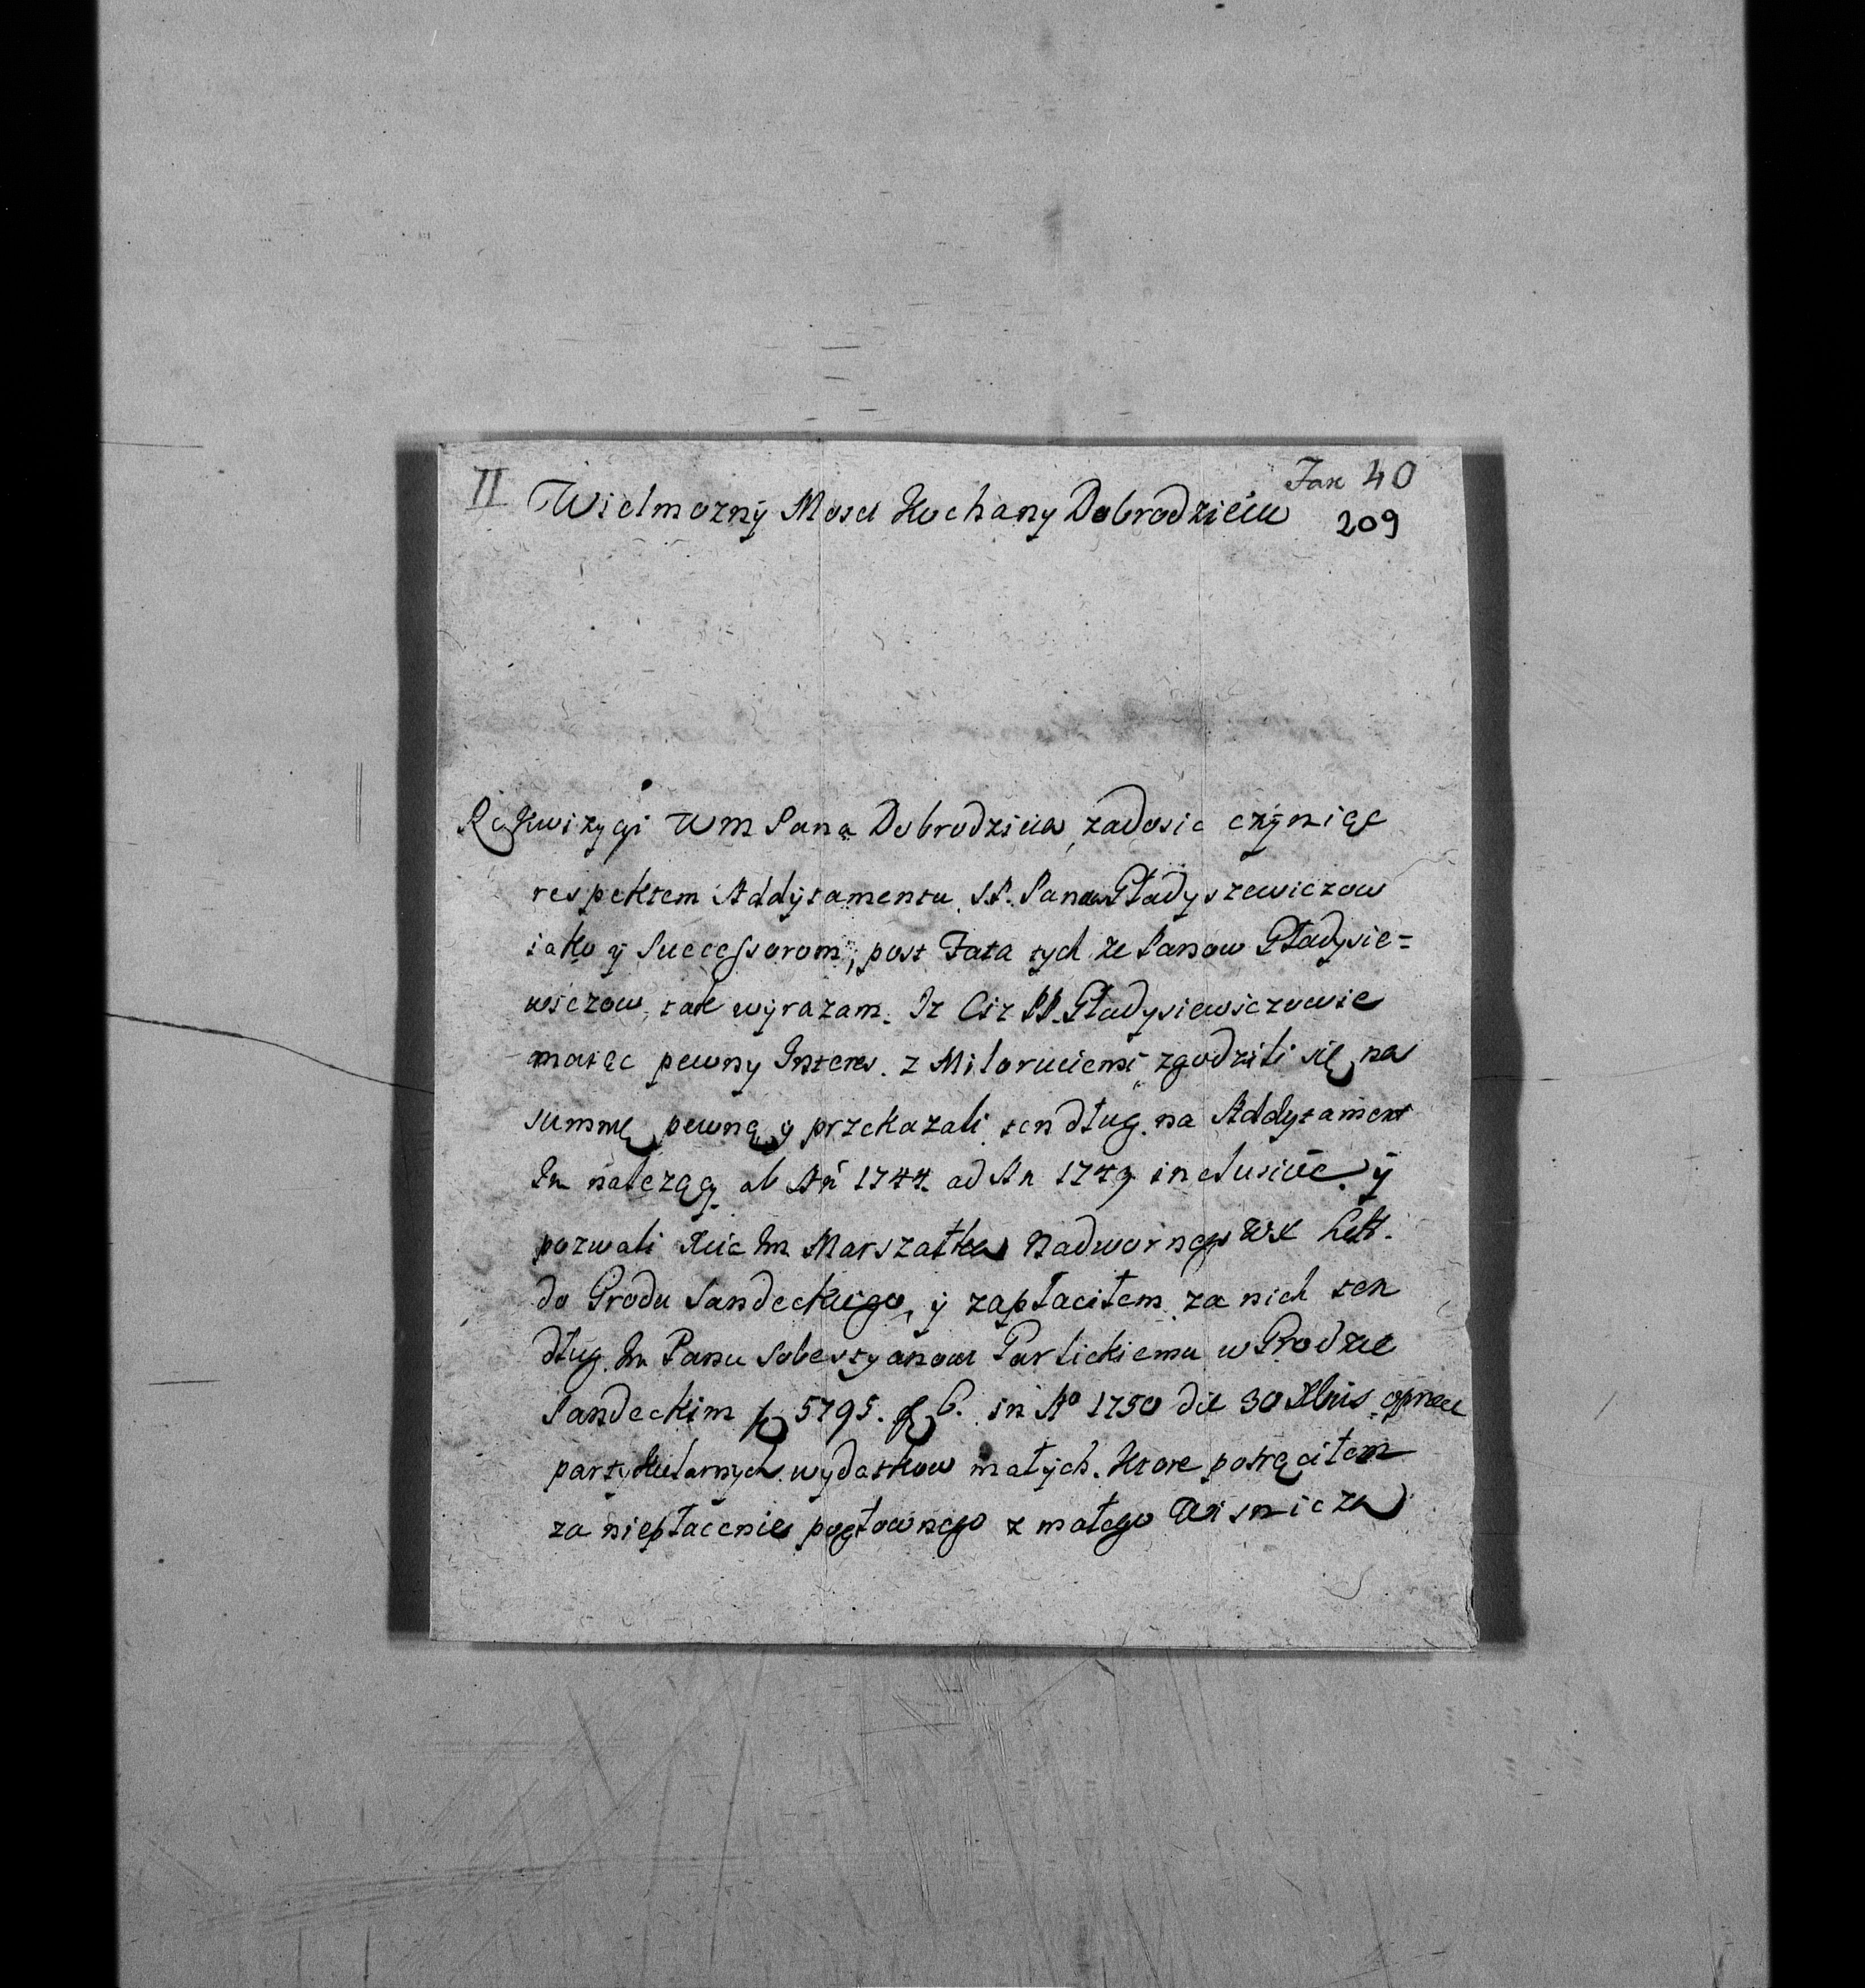 II Wielmozny Mosci Kochany Dobrodzieiu
Fasc 40
209
Rekwizycyi WM Pana Dobrodzieia, zadosic czyniąc
respektem Addytamentu J.P. Panow Gładyszewiczow
iako y Successorom, post Fata tych ze Panow Gładysie=
wiczow, tak wyrazam. Iz Ciz PP. Gładysiewiczowie
maiąc pewny Interes z Miloruciemi, zgodzili się na
summę pewną y przekazali ten dług na Addytament
Im nalezący ab An 1744. ad An 1749 inclusive y
pozwali Xcia Im Marszałka Nadwornego WX Litt.
do Grodu Sandeckiego, y zapłaciłem za nich ten
dług Im Panu Sobestyanowi Partickiemu w Grodzie
Sandeckim 5795. 6. in Ao 1750 die 30 Xbris oprocz
partykularnych wydatkow małych. Ktore potrąciłem
za niepłacenie pogłownego z małego Wisnicza